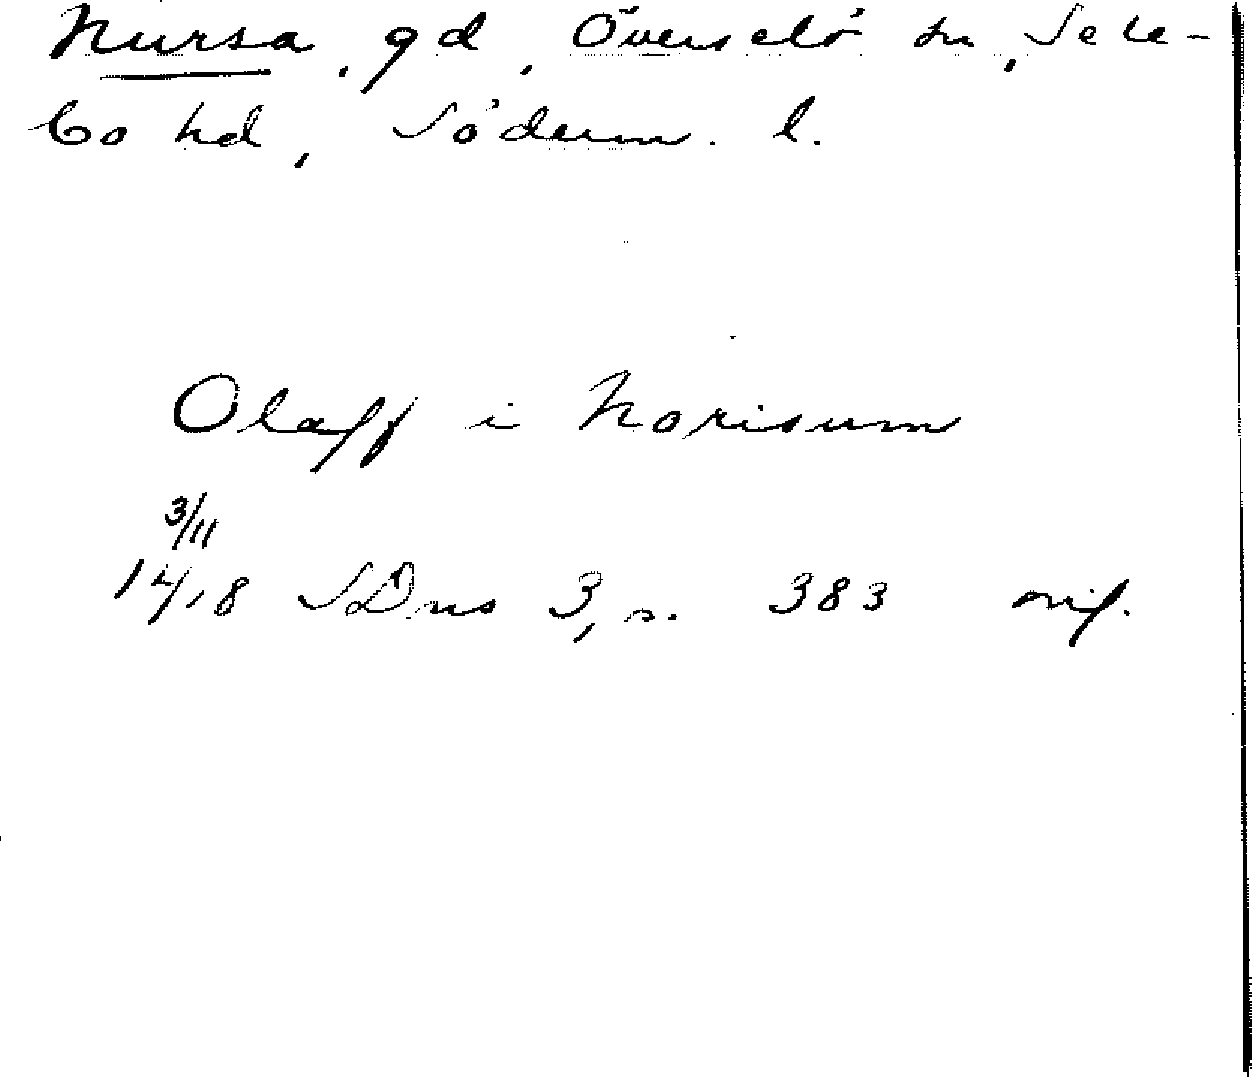 Nursa, gd, Överselö sn, Sele-
bo hd, Söderm. l.
Olaff i Norisum
3/11
1418 SDns 3, s. 383 orig.